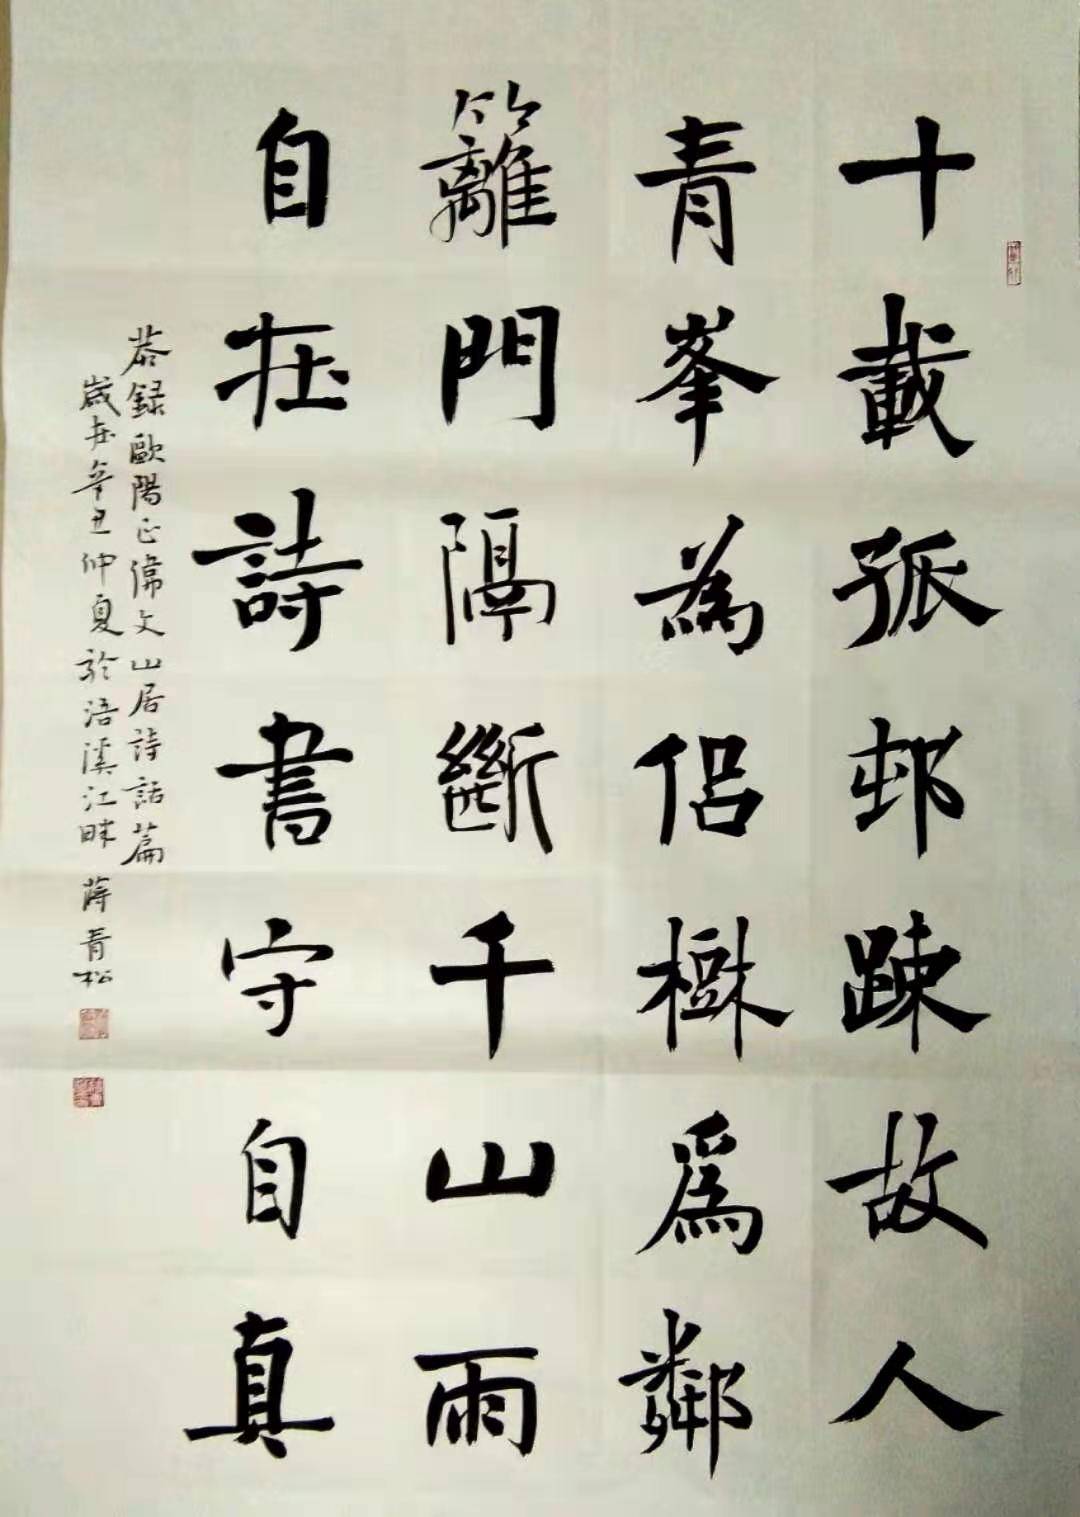 十載孤邨踈故人
青峯為侶樹為鄰
籬門隔斷千山雨
自在詩書守自真
恭録歐陽正偉文山居詩話篇
歲在辛丑仲夏於浯溪江畔 蔣青松